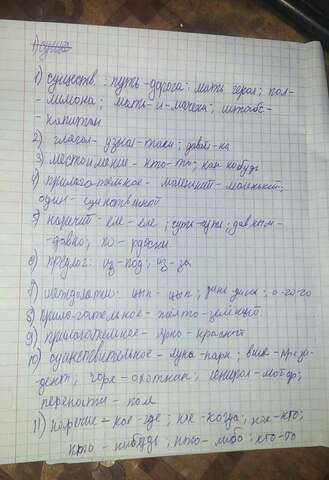 1) существ. : путь-дорога; мать герой; пол-
- лимона; мать-и-мачеха; штабс-
- капитан
2) глагол - узнал-таки; давай-ка
3) местоимение - кто-то; как нибудь
4) прилагательное - маленький-маленький;
один-единственный
5) наречие - еле-еле; чуть-чуть; давным-
- давно; по - русски
6) предлог: из-под; из-за
7) междометия: цып - цып; динь динь; о-го-го
8) прилагательное - желто-зеленый
9) прилагательное - ярко-красный
10) существительное - луна-парк; вице-прези-
дент; горе-охотник; генерал-майор;
пол
11) наречие - кое-где; кое-когда; кое-кто;
кто-нибудь; кто-либо; кто-то